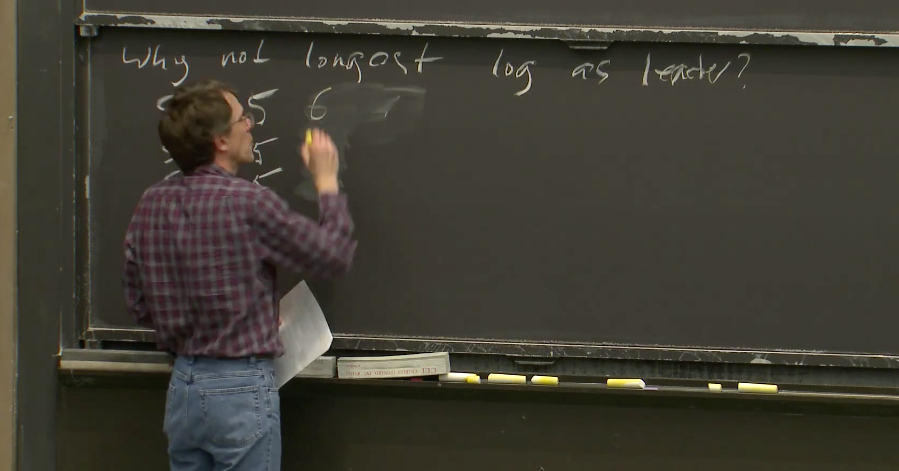 Why not longest log as leader?
5 6
5